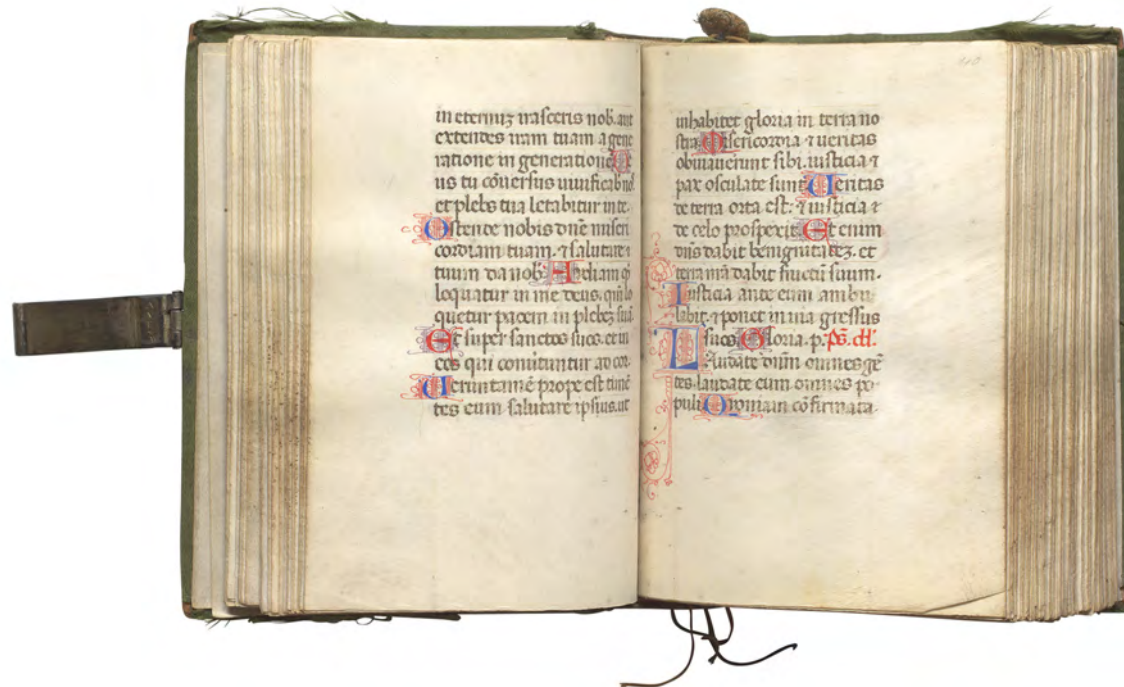 in eternuz irasceris nob. aut
extendes iram tuam a gene
ratione in generatione De
us tu cōuersus uiuificab nos
et plebs tua letabitur in te.
Ostende nobis dn̄e miseri
cordiam tuam. ⁊ salutare
tuum da nob. Audiam qͥ
loquatur in me deus. qm̄ lo
quetur pacem in plebez suā
Et super sanctos suos. et in
eos qui conuertuntur ad cor.
Ueruntamē prope est timē
tes eum salutare ipsius. ut
210
inhabitet gloria in terra no
stra Misericordia ⁊ ueritas
obuiauerunt sibi. iusticia ⁊
pax osculate sunt. Ueritas
de terra orta est. ⁊ iusticia
de celo prospexit. Et enim
dn̄s dabit benignitatez. et
terra nr̄a dabit fructū suum.
Iusticia ante eum ambu
labit. ⁊ ponet in uia gressus
suos Gloria. p. ps.
Laudate dn̄m omnes gē
tes. laudate eum omnes po
puli Qroniam cōfirmata